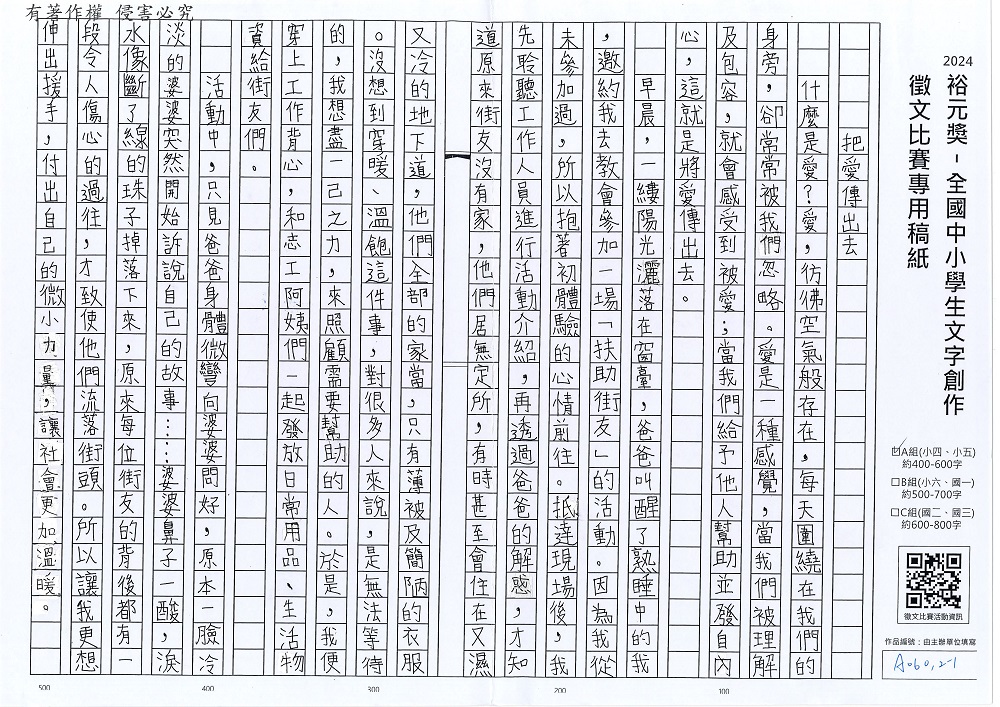 有著作權 侵害必究
2024
裕元獎-全國中小學生文字創作
徵文比賽專用稿紙
☑A組(小四、小五)
約400-600字
□B組(小六、國一)
約500-700字
□C組(國二、國三)
約600-800字
徵文比賽活動資訊
作品編號:由主辦單位填寫
A060,2-1
把愛傳出去
什麼是愛?愛,彷彿空氣般存在,每天圍繞在我們的
身旁,卻常常被我們忽略。愛是一種感覺,當我們被理解
及包容,就會感受到被愛;當我們給予他人幫助並發自內
心,這就是將愛傳出去。
早晨,一縷陽光灑落在窗臺,爸爸叫醒了熟睡中的我
,邀約我去教會參加一場「扶助街友」的活動。因為我從
未參加過,所以抱著初體驗的心情前往。抵達現場後,我
先聆聽工作人員進行活動介紹,再透過爸爸的解惑,才知
道原來街友沒有家,他們居無定所,有時甚至會住在又濕
又冷的地下道,他們全部的家當,只有薄被及簡陋的衣服
。沒想到穿暖、溫飽這件事,對很多人來說,是無法等待
的,我想盡一己之力,來照顧需要幫助的人。於是,我便
穿上工作背心,和志工阿姨們一起發放日常用品、生活物
資給街友們。
活動中,只見爸爸身體微彎向婆婆問好,原本一臉冷
淡的婆婆突然開始訴說自己的故事……婆婆鼻子一酸,淚
水像斷了線的珠子掉落下來,原來每位街友的背後都有一
段令人傷心的過往,才致使他們流落街頭。所以讓我更想
伸出援手,付出自己的微小力量,讓社會更加溫暖。
100
200
300
400
500